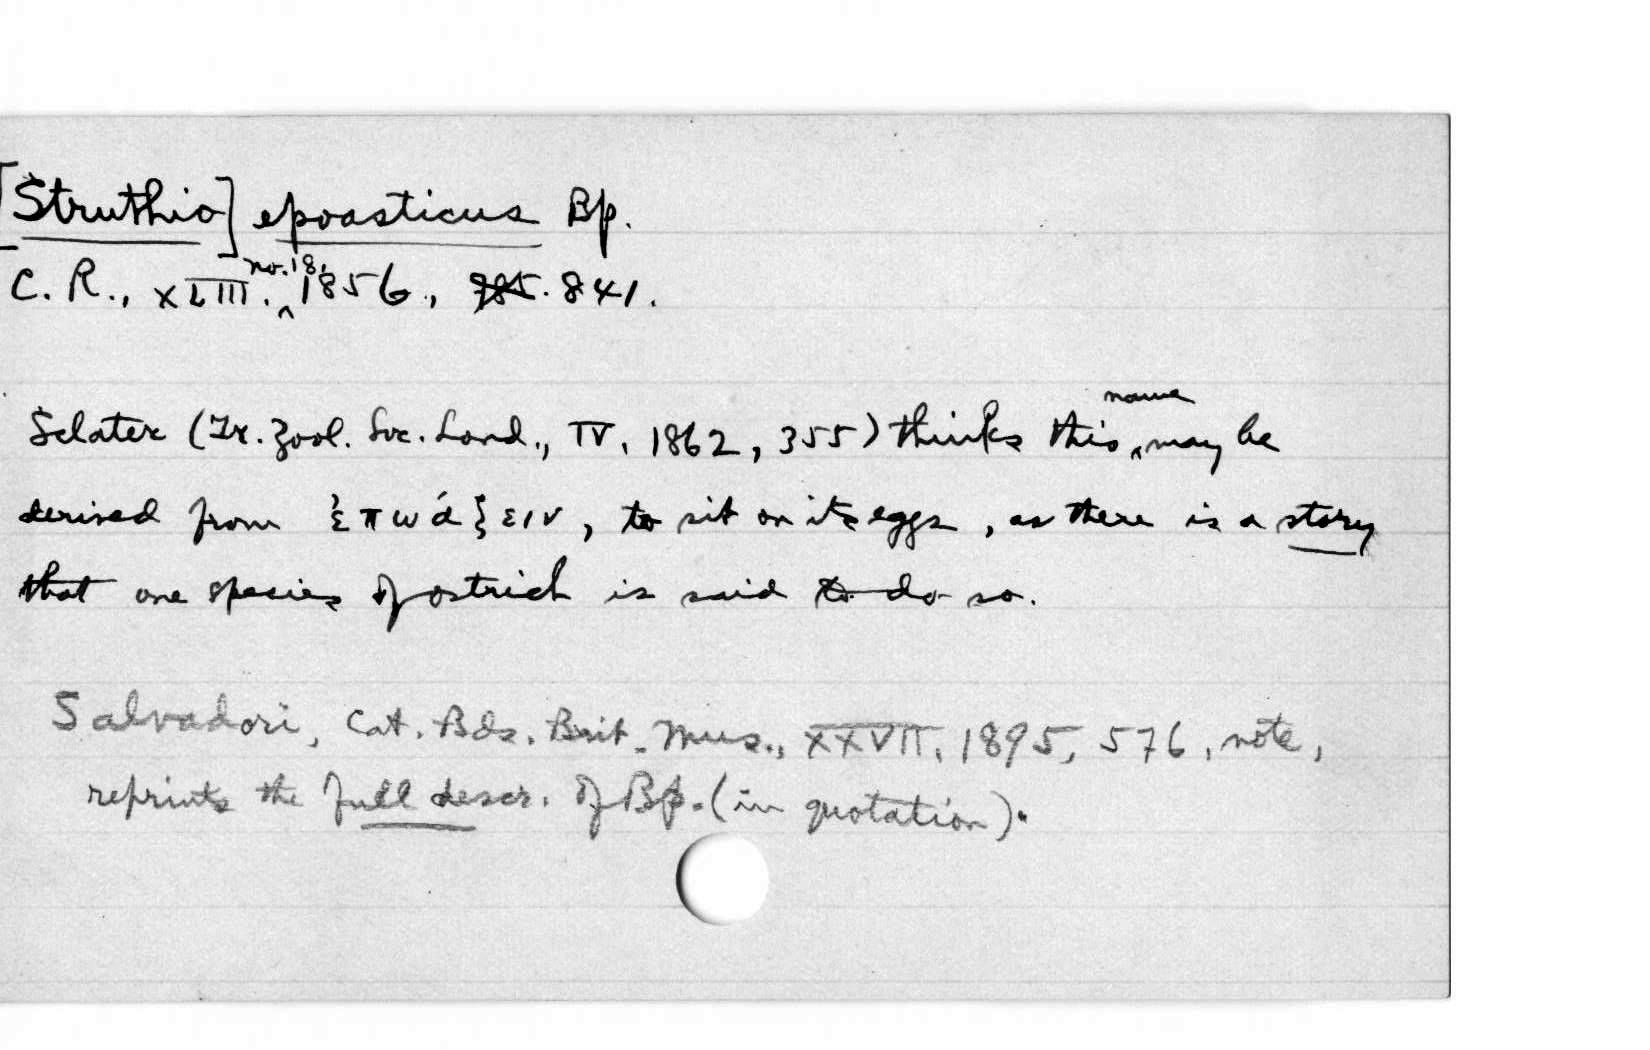 [Struthio] epoasticus Bp.
C. R., XLIII. no. 18, 1856., 841.
Sclater (Tr. Zool. Soc. Lond., IV, 1862, 355) thinks this name may be
derived from ἐπωάζειν, to sit on its eggs, as there is a story
that one species of ostrich is said to do so.
Salvadori, Cat. Bds. Brit. Mus., XXVII, 1895, 576, note,
reprints the full descr. of Bp. (in quotation).